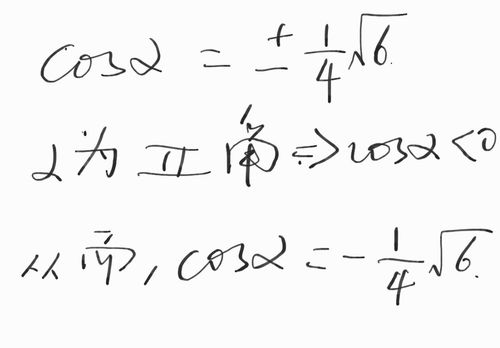 cosα = ± 1/4 √6.
α为 II 角 => cosα < 0
从而, cosα = - 1/4 √6.